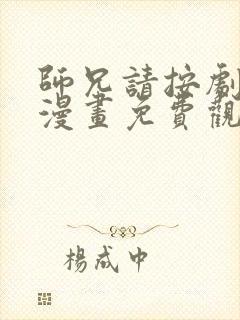 師兄請按劇
漫畫免費觀
楊成中